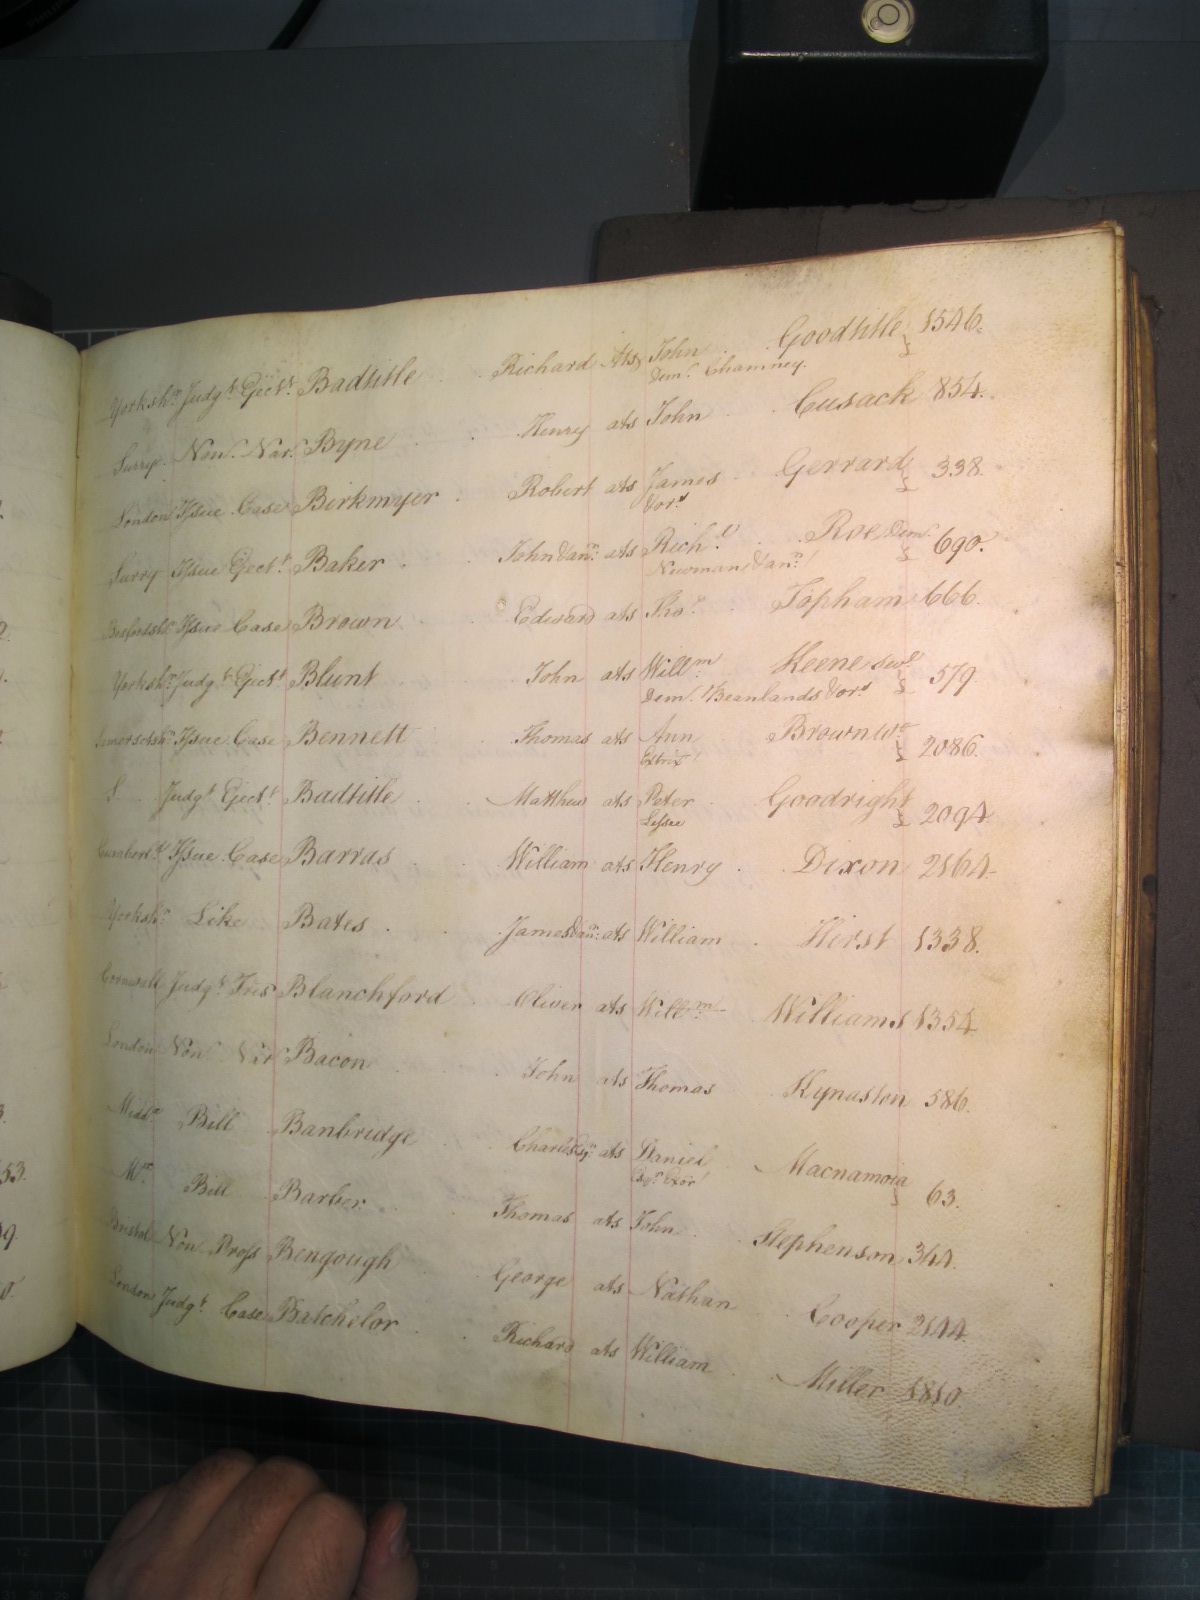 Yorksh.r Judg.t Eject.t Badtitle Richard Ats John Goodtitle 1546.
Dem.e Chamney.
Surry Non. Nar. Byne Henry ats John Cusack 854.
London Issue Case Birkmyer Robert ats James Gerrard 338.
& or.s
Surry Issue Eject.t Baker John & an.r ats Rich.d Roe Dem. 690.
Newman & an.r
Issue Case Brown Edward ats Tho.s Topham 666.
Yorksh.r Judg.t Eject.t Blunt John ats Will.m Keene sev.l 579
Dem. Beanlands & or.s
Somersetsh.r Issue Case Bennett Thomas ats Ann Brown W.o 2086.
Extrix
S Judg.t Eject.t Badtitle Matthew ats Peter Goodright 2094
Lessee
Cumberl.d Issue Case Barras William ats Henry Dixon 2164
Yorksh.r Like Bates James & an.r ats William Hirst 1338.
Cornwall Judg.t Tres Blanchford Oliver ats Will.m Williams 1354
London Non Nar Bacon John ats Thomas Kynaston 586.
Midd.x Bill Banbridge Charles Esq.r ats Daniel Macnamara 63.
Esq.r Exor
M.x Bill Barber Thomas ats John Stephenson 344.
Bristol Non Pross Bengough George ats Nathan Cooper 2144
London Judg.t Case Batchelor Richard ats William Miller 1810.
53.